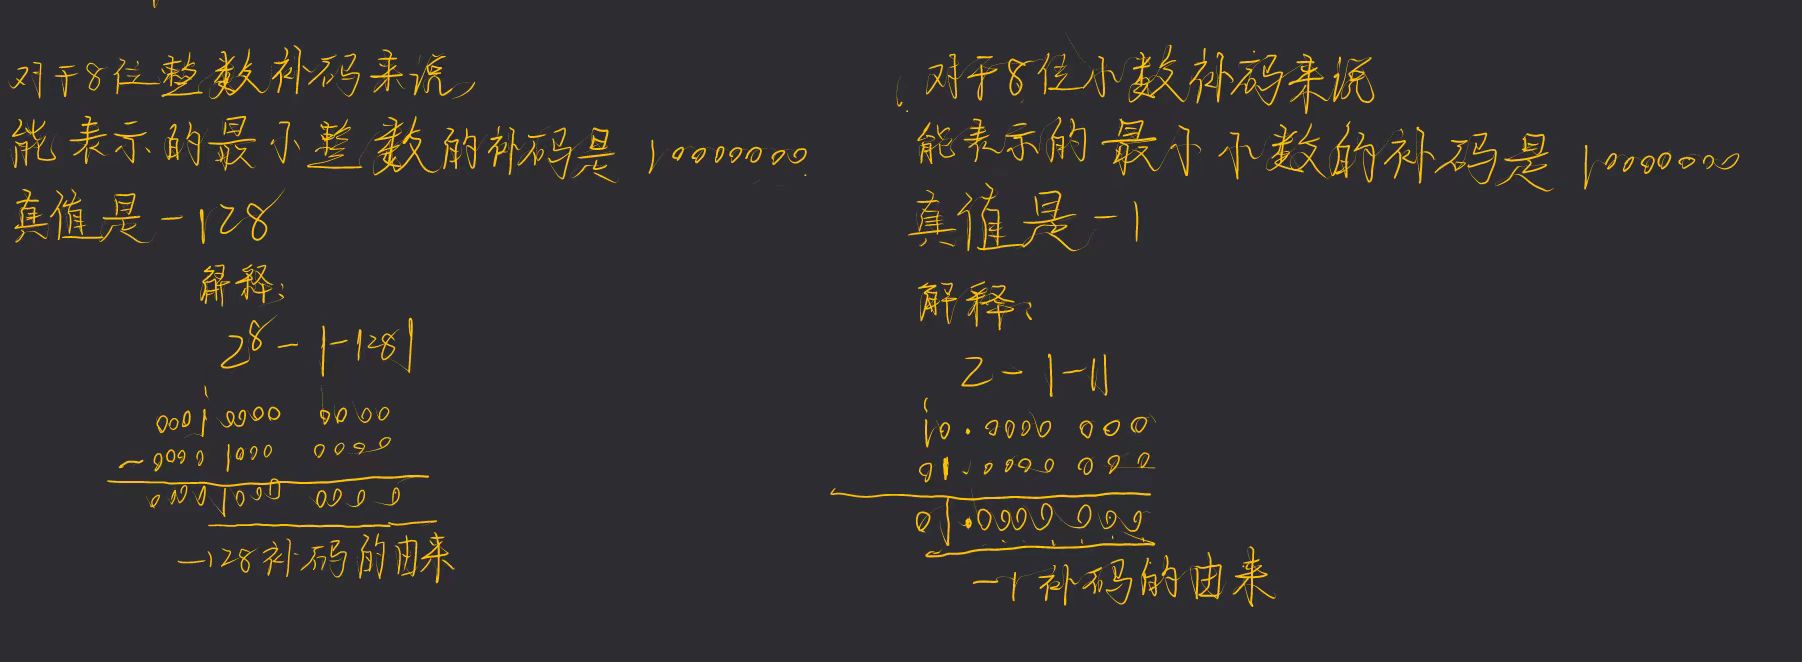 对于8位整数补码来说,
能表示的最小整数的补码是 10000000
真值是 -128
解释:
2⁸ - |-128|
0001 0000 0000
- 0000 1000 0000
0000 1000 0000
-128补码的由来
对于8位小数补码来说
能表示的最小小数的补码是 10000000
真值是 -1
解释:
2 - |-1|
10.0000 000
01.0000 000
01.0000 000
-1补码的由来